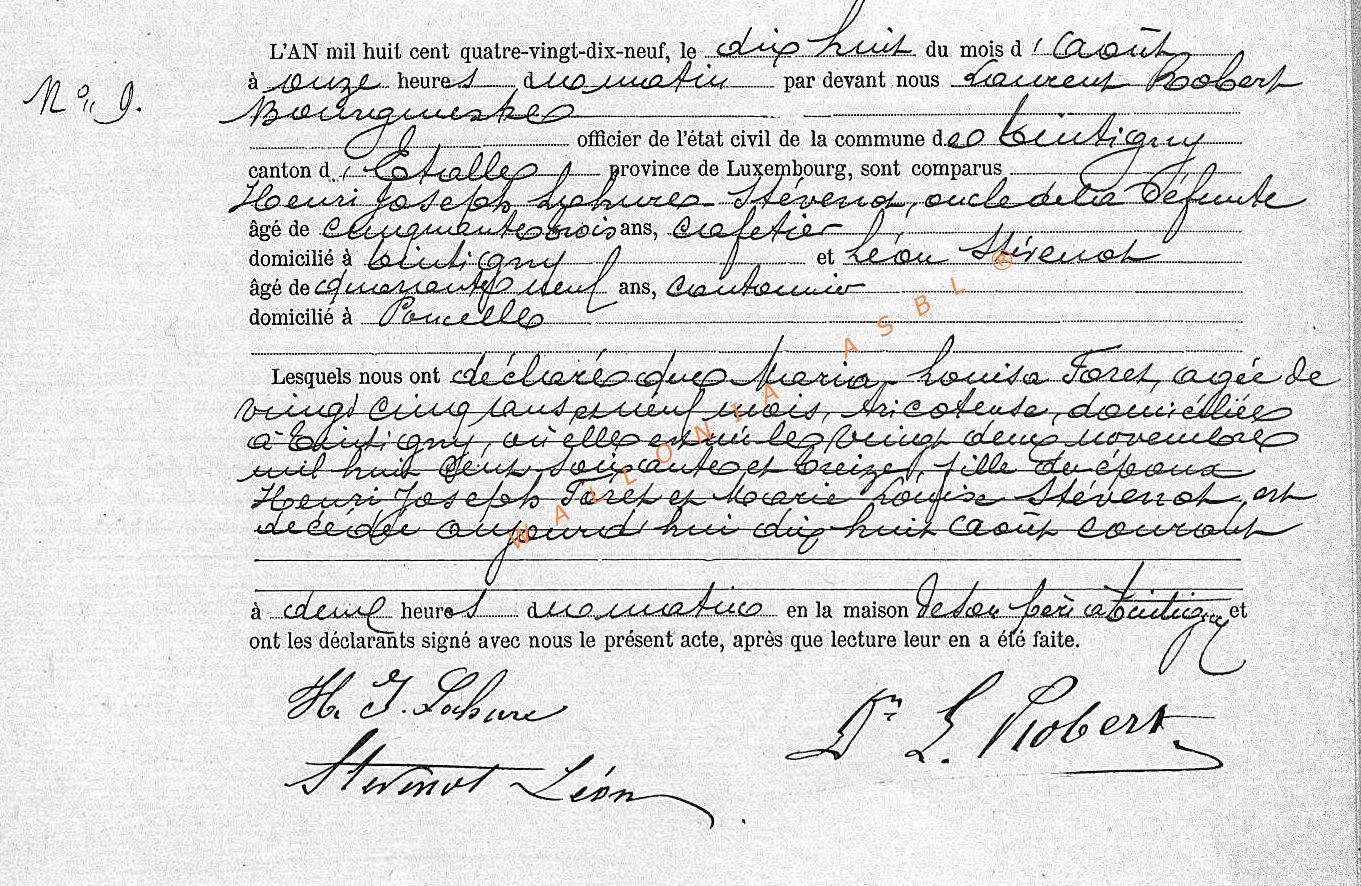 L'AN mil huit cent quatre-vingt-dix-neuf, le dix huit du mois d'Août
N° 9.
à onze heures du matin par devant nous Laurent Robert
Bourgmestre
officier de l'état civil de la commune de Tintigny
canton d'Etalle province de Luxembourg, sont comparus
Henri Joseph Lahure - Stévenot, oncle de la défunte
âgé de cinquante trois ans, cafetier
domicilié à Tintigny et Léon Stévenot
âgé de quarante neuf ans, cantonnier
domicilié à Poncelle
Lesquels nous ont déclaré que Maria Louisa Foret, agée de
vingt cinq ans et neuf mois, tricoteuse, domiciliée
à Tintigny, où elle est née le vingt deux novembre
mil huit cent soixante et treize, fille des époux
Henri Joseph Foret et Marie Louise Stévenot, est
décédée aujourd'hui dix huit Août courant
à deux heures du matin en la maison de son père à Tintigny et
ont les déclarants signé avec nous le présent acte, après que lecture leur en a été faite.
H. J. Lahure
Dr L. Robert
Stévenot Léon
WALLONIA ASBL ®